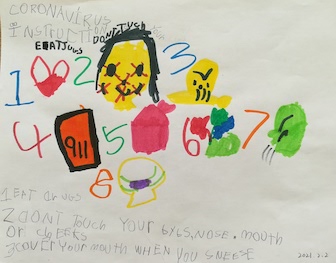 CORONAVIRUS
INSTRUCTION
EEATJUGS DONT TUCH
1 2 3
4 911 5 6 7
8
1 EAT drugs
2 DONT Touch YOUR EYES, NOSE. mouth
OR CHEEKS
3 COVER YOUR MOUTH WHEN YOU SNEESE
2021. 2. 2.